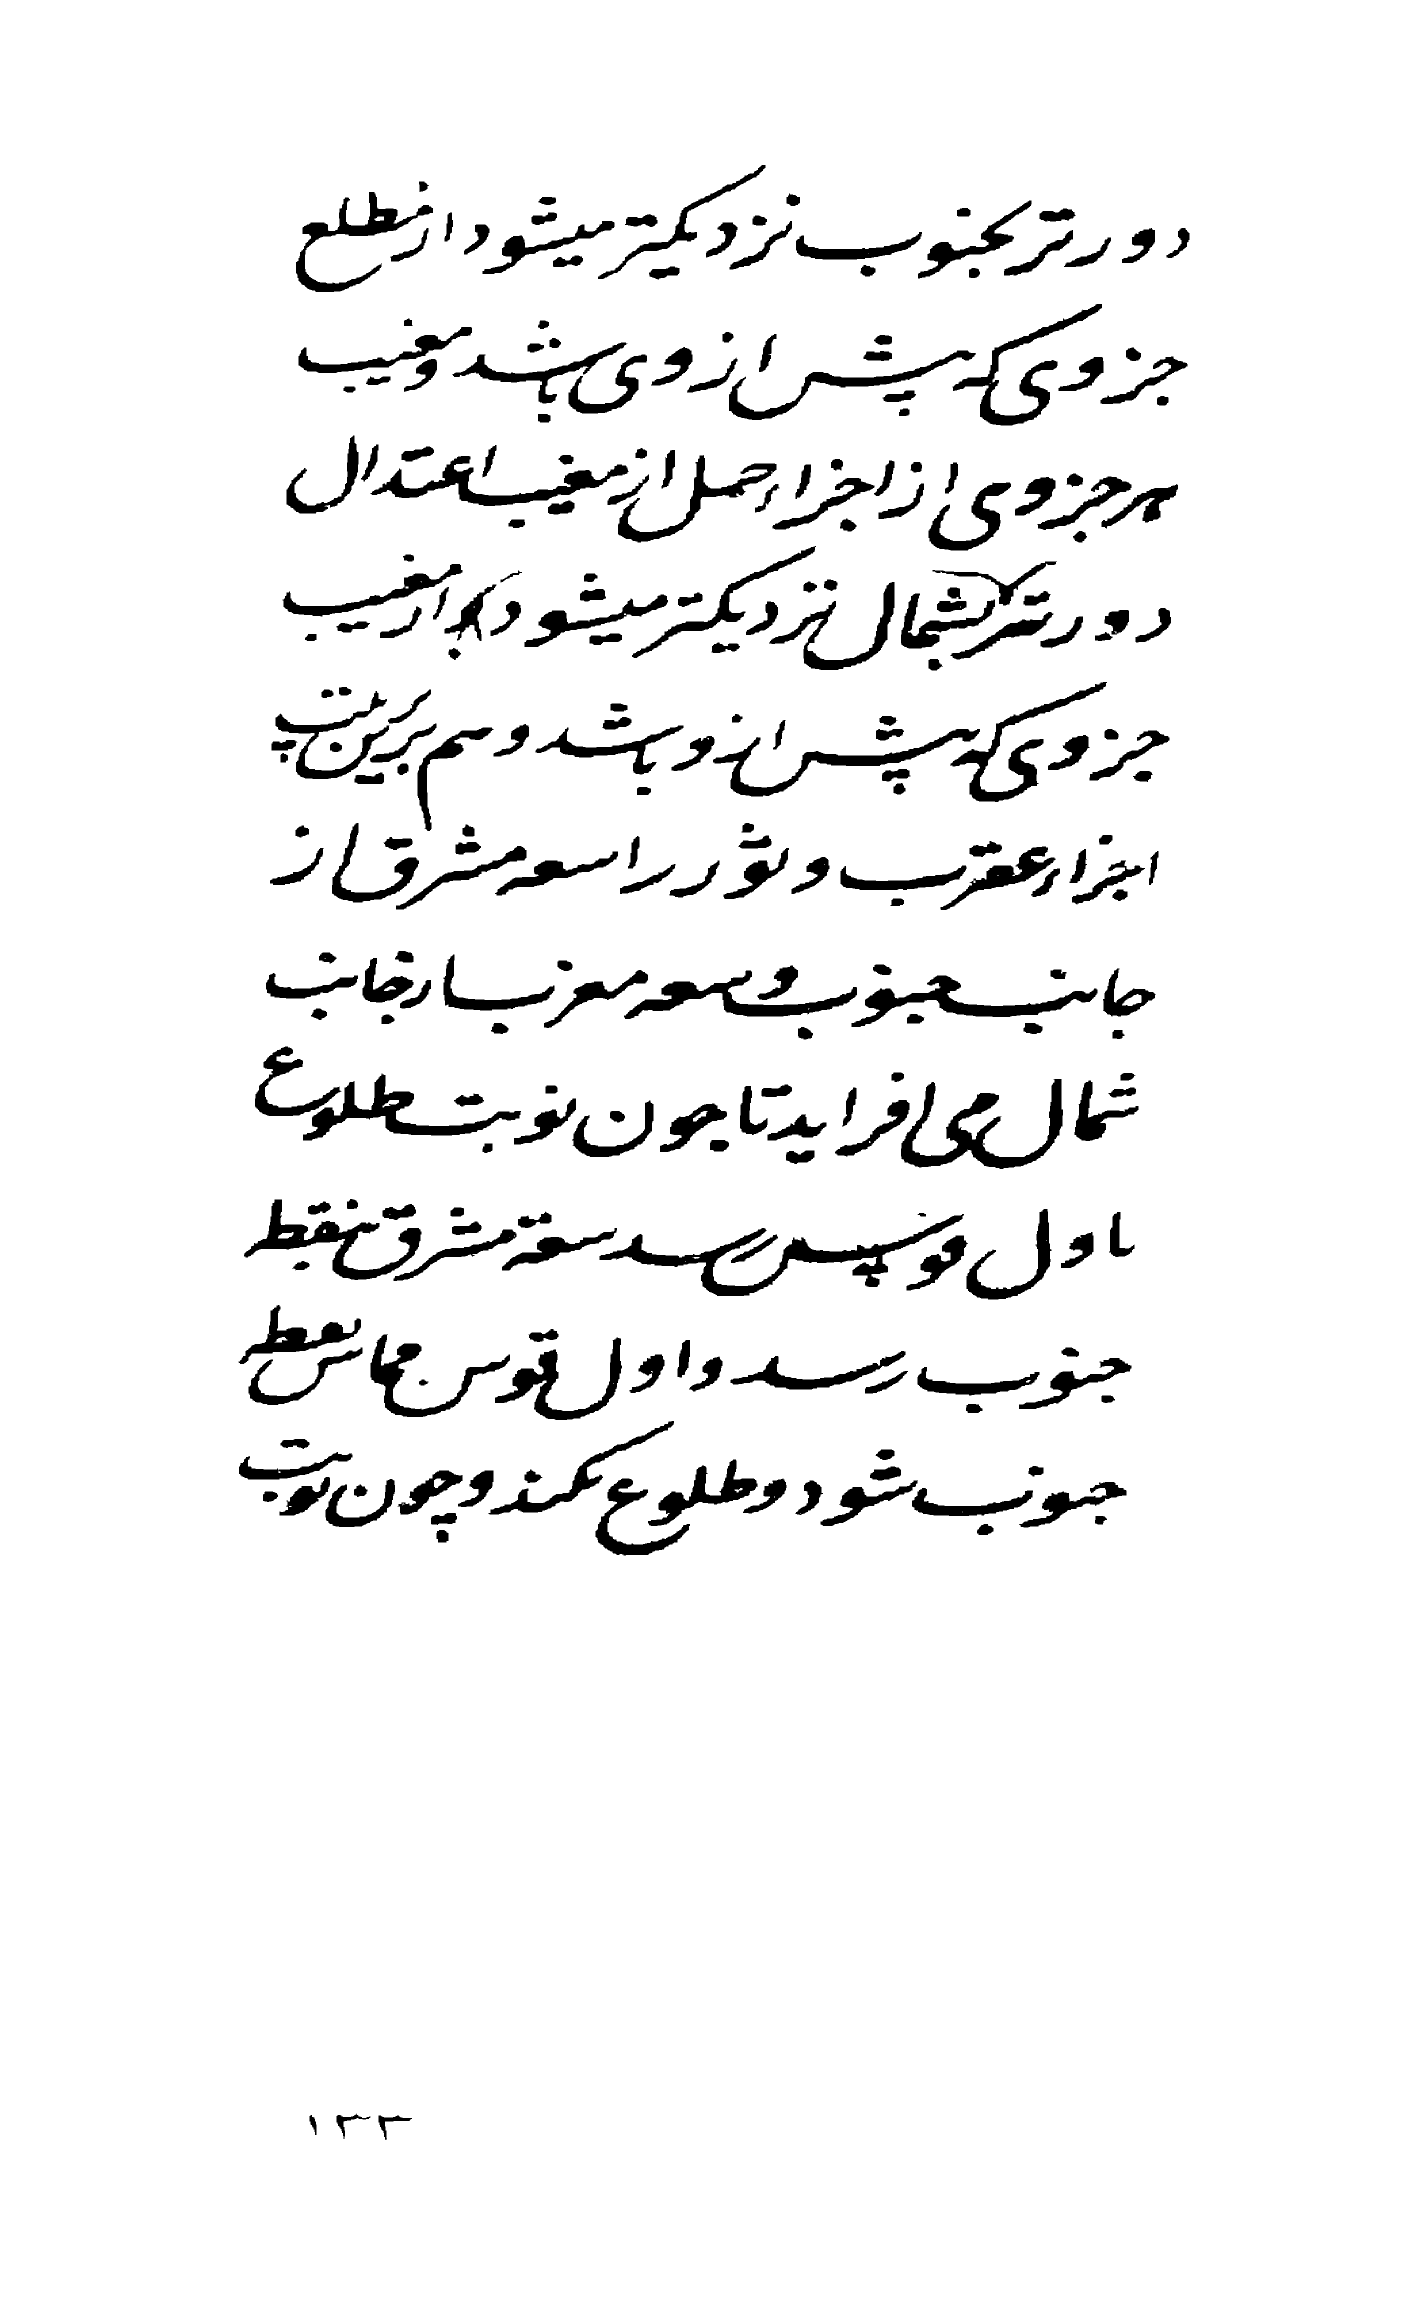 دورتر بجنوب نزدیکتر میشود از مطلع
جزوی که پیش از وی باشد و مغیب
هر جزوی از اجزاء حمل از مغیب اعتدال
دورتر بشمال نزدیکتر میشود از مغیب
جزوی که پیش از و باشد و هم برین ترتیب
اجزاء عقرب و ثور را سعه مشرق از
جانب جنوب و سعه مغرب از جانب
شمال می افزاید تا چون نوبت طلوع
باول قوس رسد سعة مشرق بنقطه
جنوب رسد و اول قوس مماس نقطه
جنوب شود و طلوع نکند و چون نوبت
۱۳۳